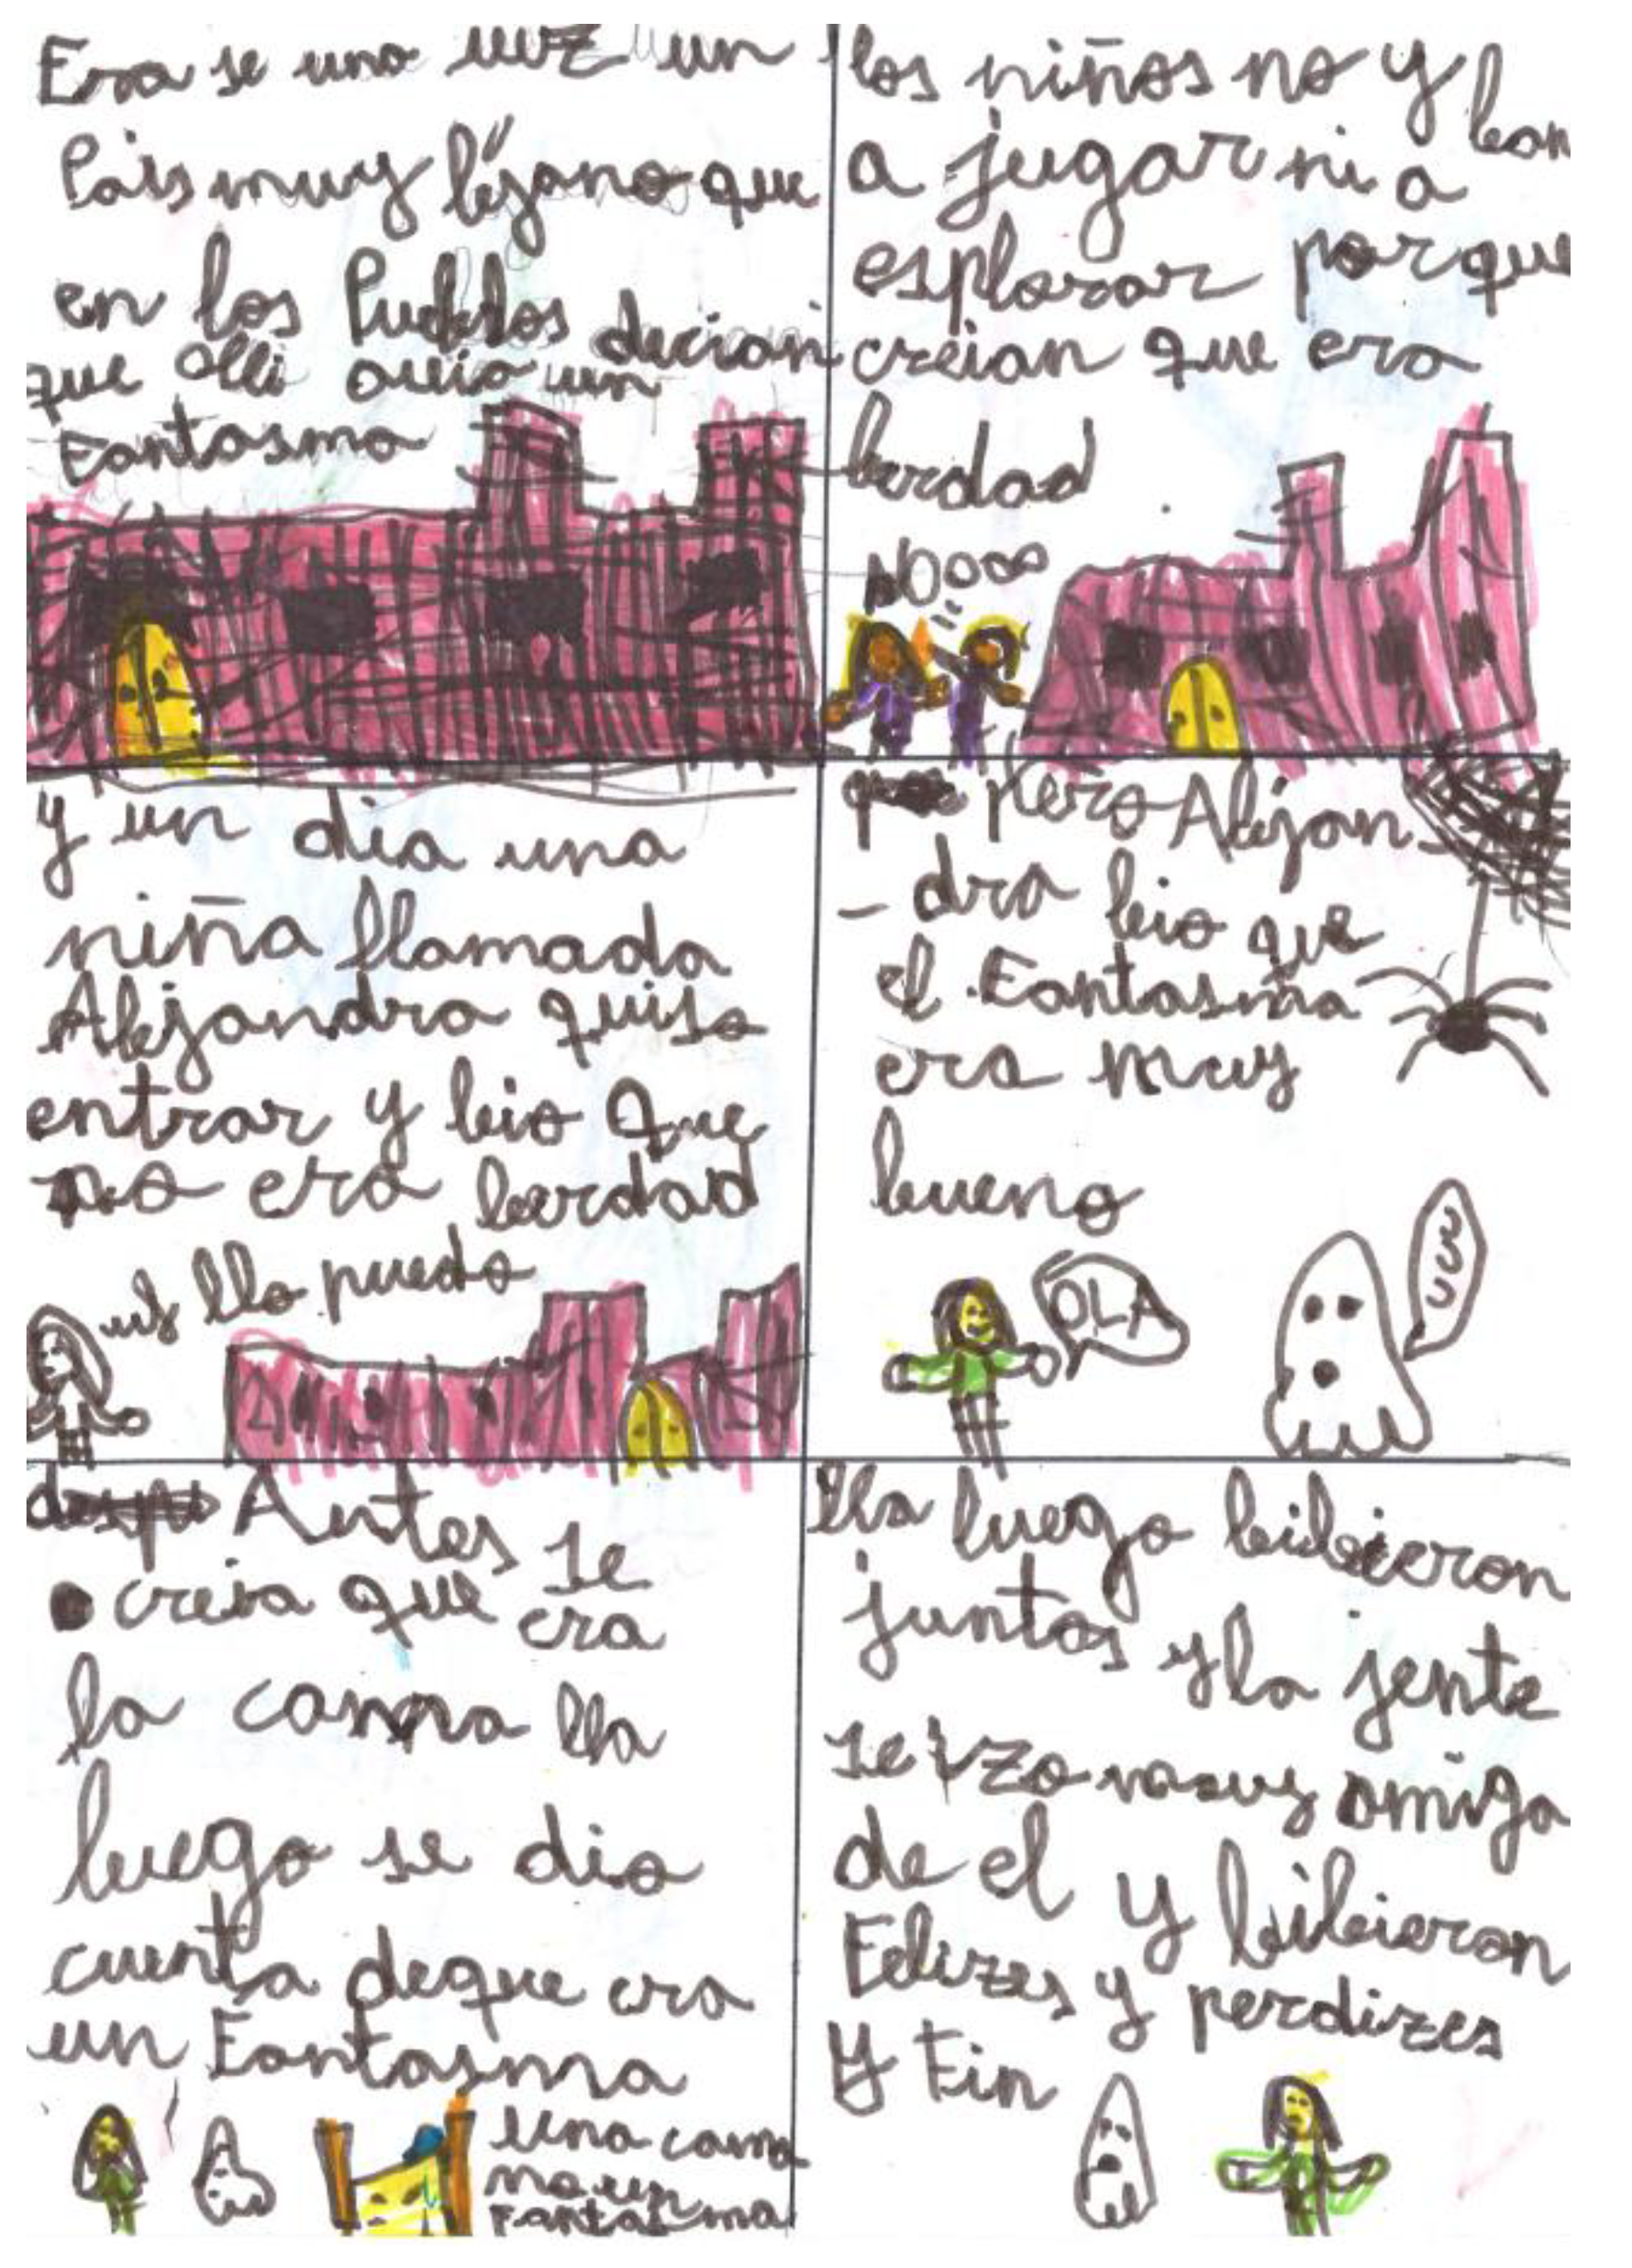 Era se una vez un
Pais muy léjano que
en los Pueblos decian
que alli avia un
Fantasma
los niños no y ban
a jugar ni a
esplorar porque
creian que era
berdad
NOooo
y un dia una
niña llamada
Alejandra quiso
entrar y bio que
no era berdad
llo puedo
pero Alejan
- dra bio que
el Fantasma
era muy
bueno
OLA
UUU
Antes se
creia que era
la cama lla
luego se dio
cuenta deque era
un Fantasma
una cama
no un
Fantasma
lla luego bibieron
juntos y la jente
se izo muy amiga
de el y bibieron
Felizes y perdizes
y Fin